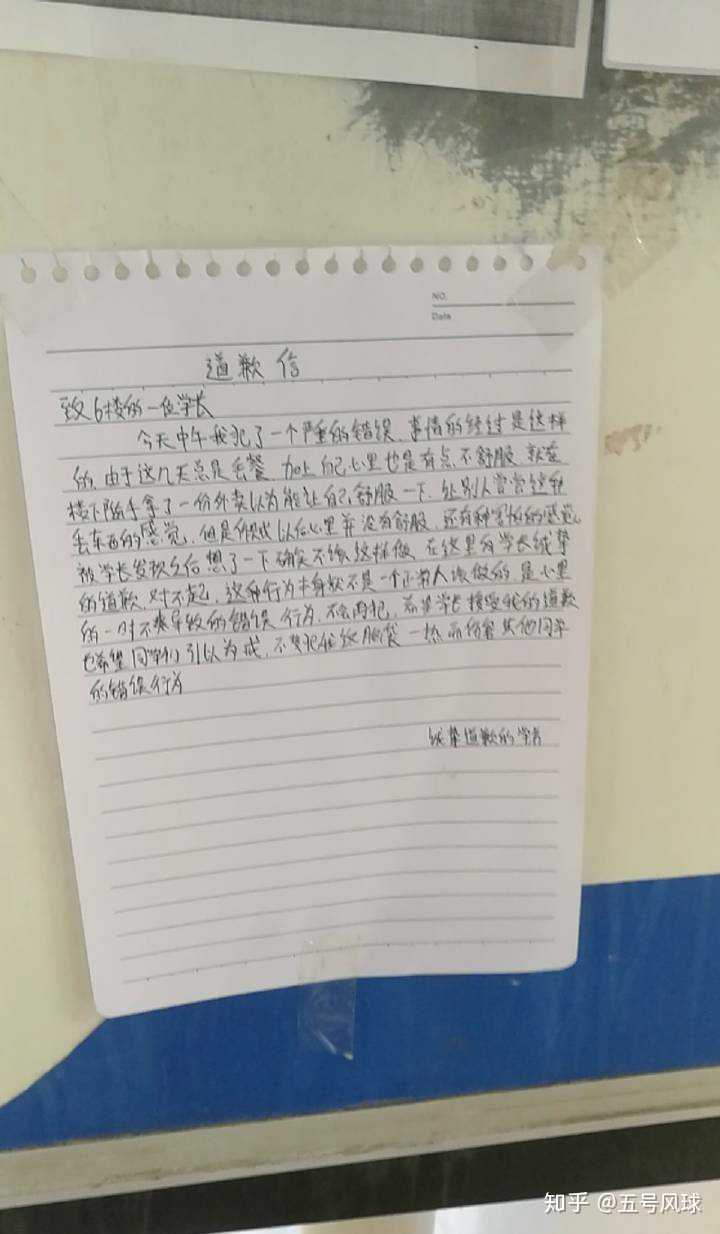 NO.
Date
道歉信
致6楼的一位学长
今天中午我犯了一个严重的错误、事情的经过是这样
的、由于这几天总是丢餐、加上自己心里也是有点不舒服、就在
楼下随手拿了一份外卖以为能让自己舒服一下、让别人尝尝这种
丢东西的感觉、但是做以后心里并没有舒服、还有种害怕的感觉、
被学长发现之后想了一下确实不该这样做、在这里向学长诚挚
的道歉、对不起、这种行为本身就不是一个正常人该做的、是心里
的一时不爽导致的错误行为、不会再犯、希望学长接受我的道歉
也希望同学们引以为戒、不要犯脑袋一热而伤害其他同学
的错误行为
诚挚道歉的学弟
知乎 @五号风球